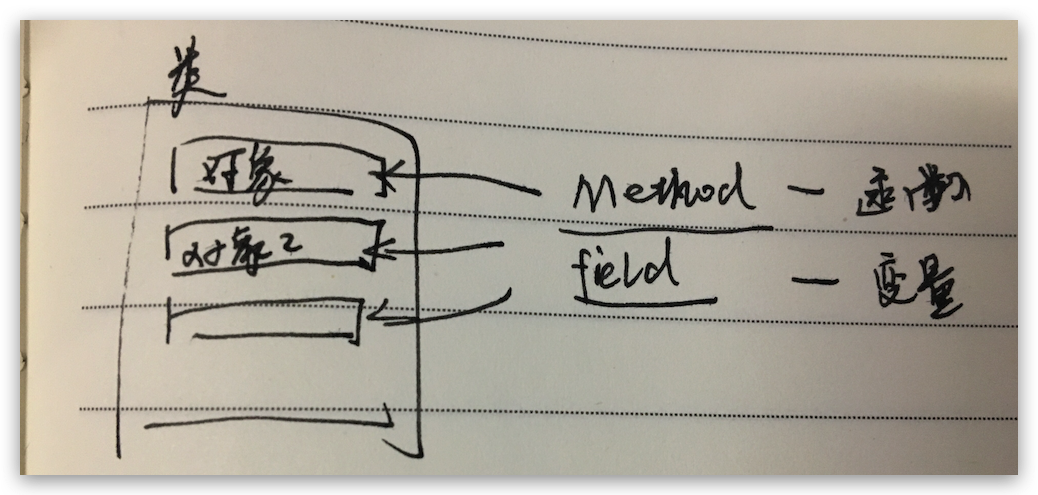 类
对象
对象2
Method — 函数
field — 变量